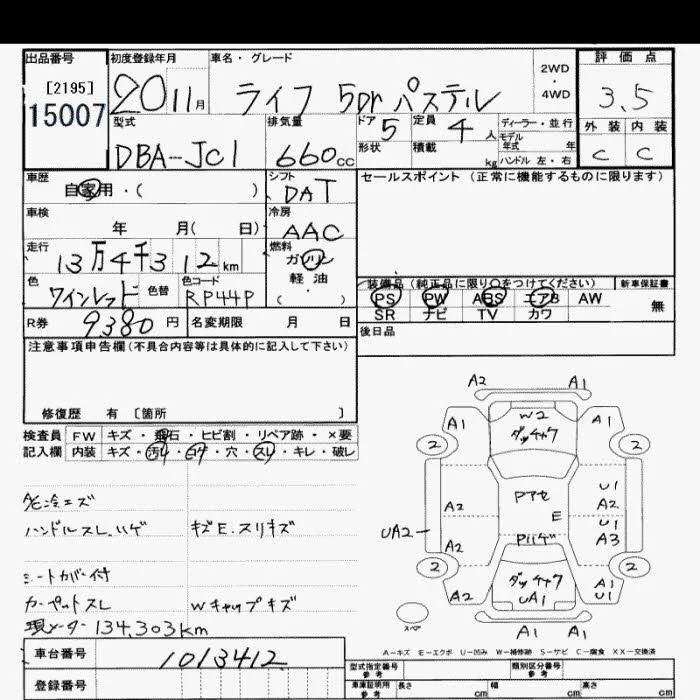 出品番号
[2195]
15007
初度登録年月
20 11月
車名・グレード
ライフ 5Dr パステル
2WD
・
4WD
評価点
3.5
外装 内装
C C
型式
DBA-JC1
排気量
660cc
ドア 5
形状
定員 4人
積載 kg
ディーラー・並行
モデル
年式 年
ハンドル 左・右
車歴
自家用・( )
シフト
DAT
セールスポイント (正常に機能するものに限ります)
車検
年 月( 日)
冷房
AAC
走行
13万4千312km
燃料
ガソリン
軽・油
( )
色
ワインレッド
色替
色コード
RP44P
装備品(純正品に限り○をつけてください)
新車保証書
無
PS PW ABS エアB AW
SR ナビ TV カワ
R券 9380円
名変期限 月 日
後日品
注意事項申告欄(不具合内容等は具体的に記入して下さい)
修復歴 有 〔箇所 〕
検査員
記入欄
FW キズ・飛石・ヒビ割・リペア跡・×要
内装 キズ・汚れ・コゲ・穴・スレ・キレ・破レ
A/C冷エズ
ハンドルスレ、ハゲ
キズE.スリキズ
シートカバー付
カーペットスレ
Wキャップキズ
現メーター134,303km
A2 A1
A1 W2 A1
ダッチャク
2 2
アアセ
U1
A2 A2
E U1
UA2 A3
A2 アハゲ
2 2
ダッチャク
A2 UA1 A1
U1
スペア
A1 A1
A-キズ E-エクボ U-凹み W-補修跡 S-サビ C-腐食 XX-交換済
車台番号 1013412
登録番号
型式指定番号
参考
類別区分番号
参考
車庫証明用
参考
長さ cm
幅 cm
高さ cm